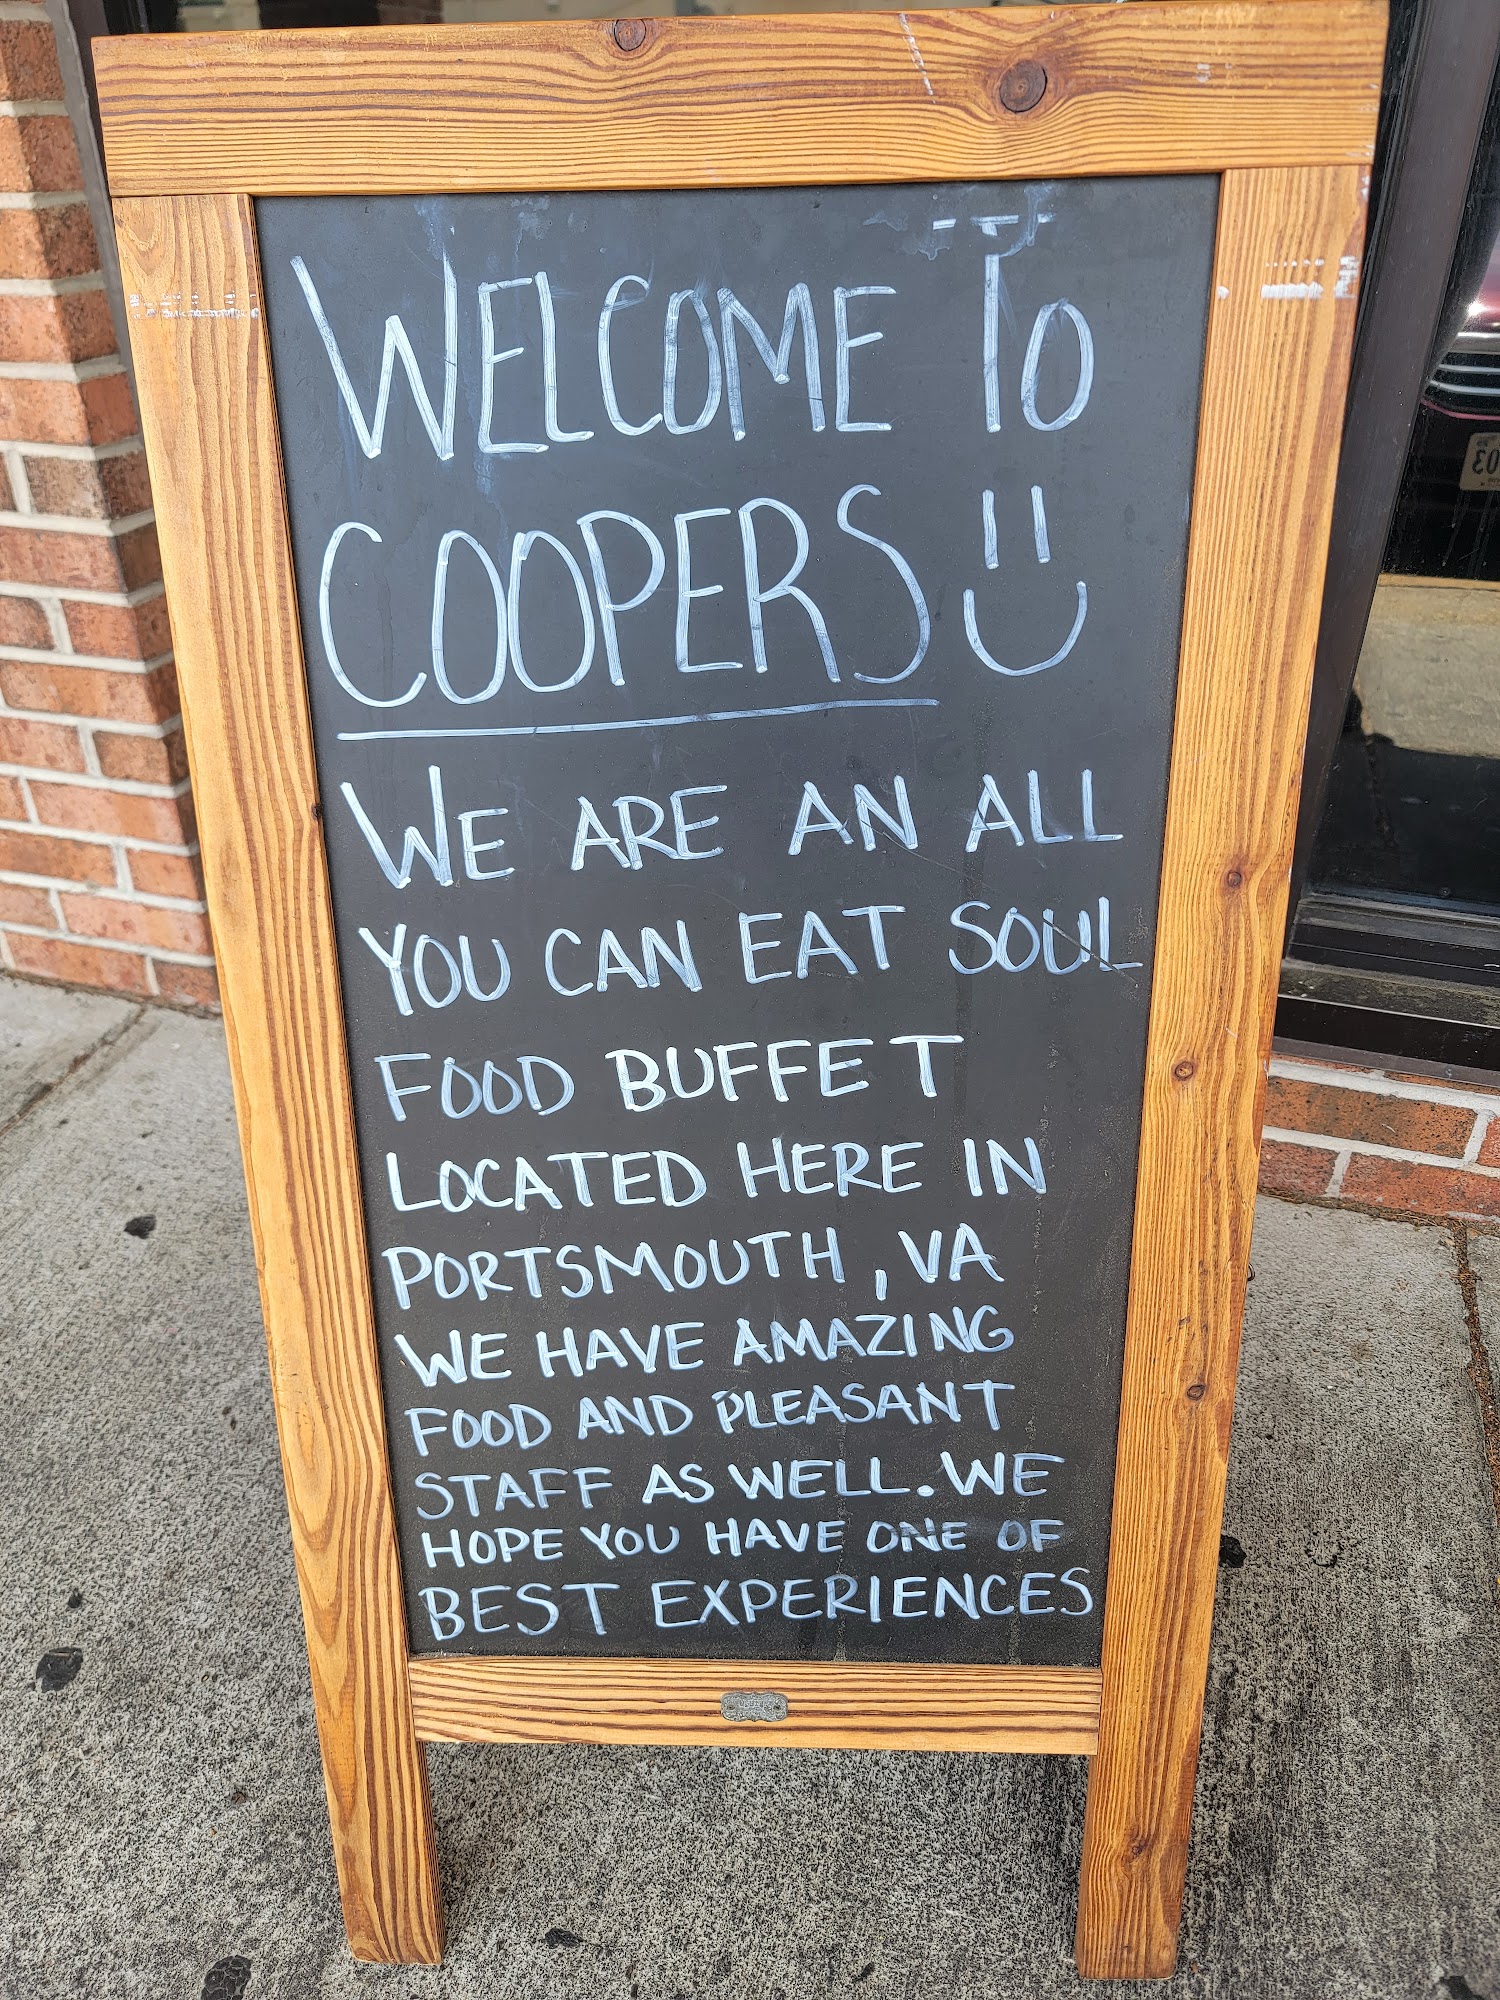 WELCOME TO
COOPERS
WE ARE AN ALL
YOU CAN EAT SOUL
FOOD BUFFET
LOCATED HERE IN
PORTSMOUTH, VA
WE HAVE AMAZING
FOOD AND PLEASANT
STAFF AS WELL. WE
HOPE YOU HAVE ONE OF
BEST EXPERIENCES